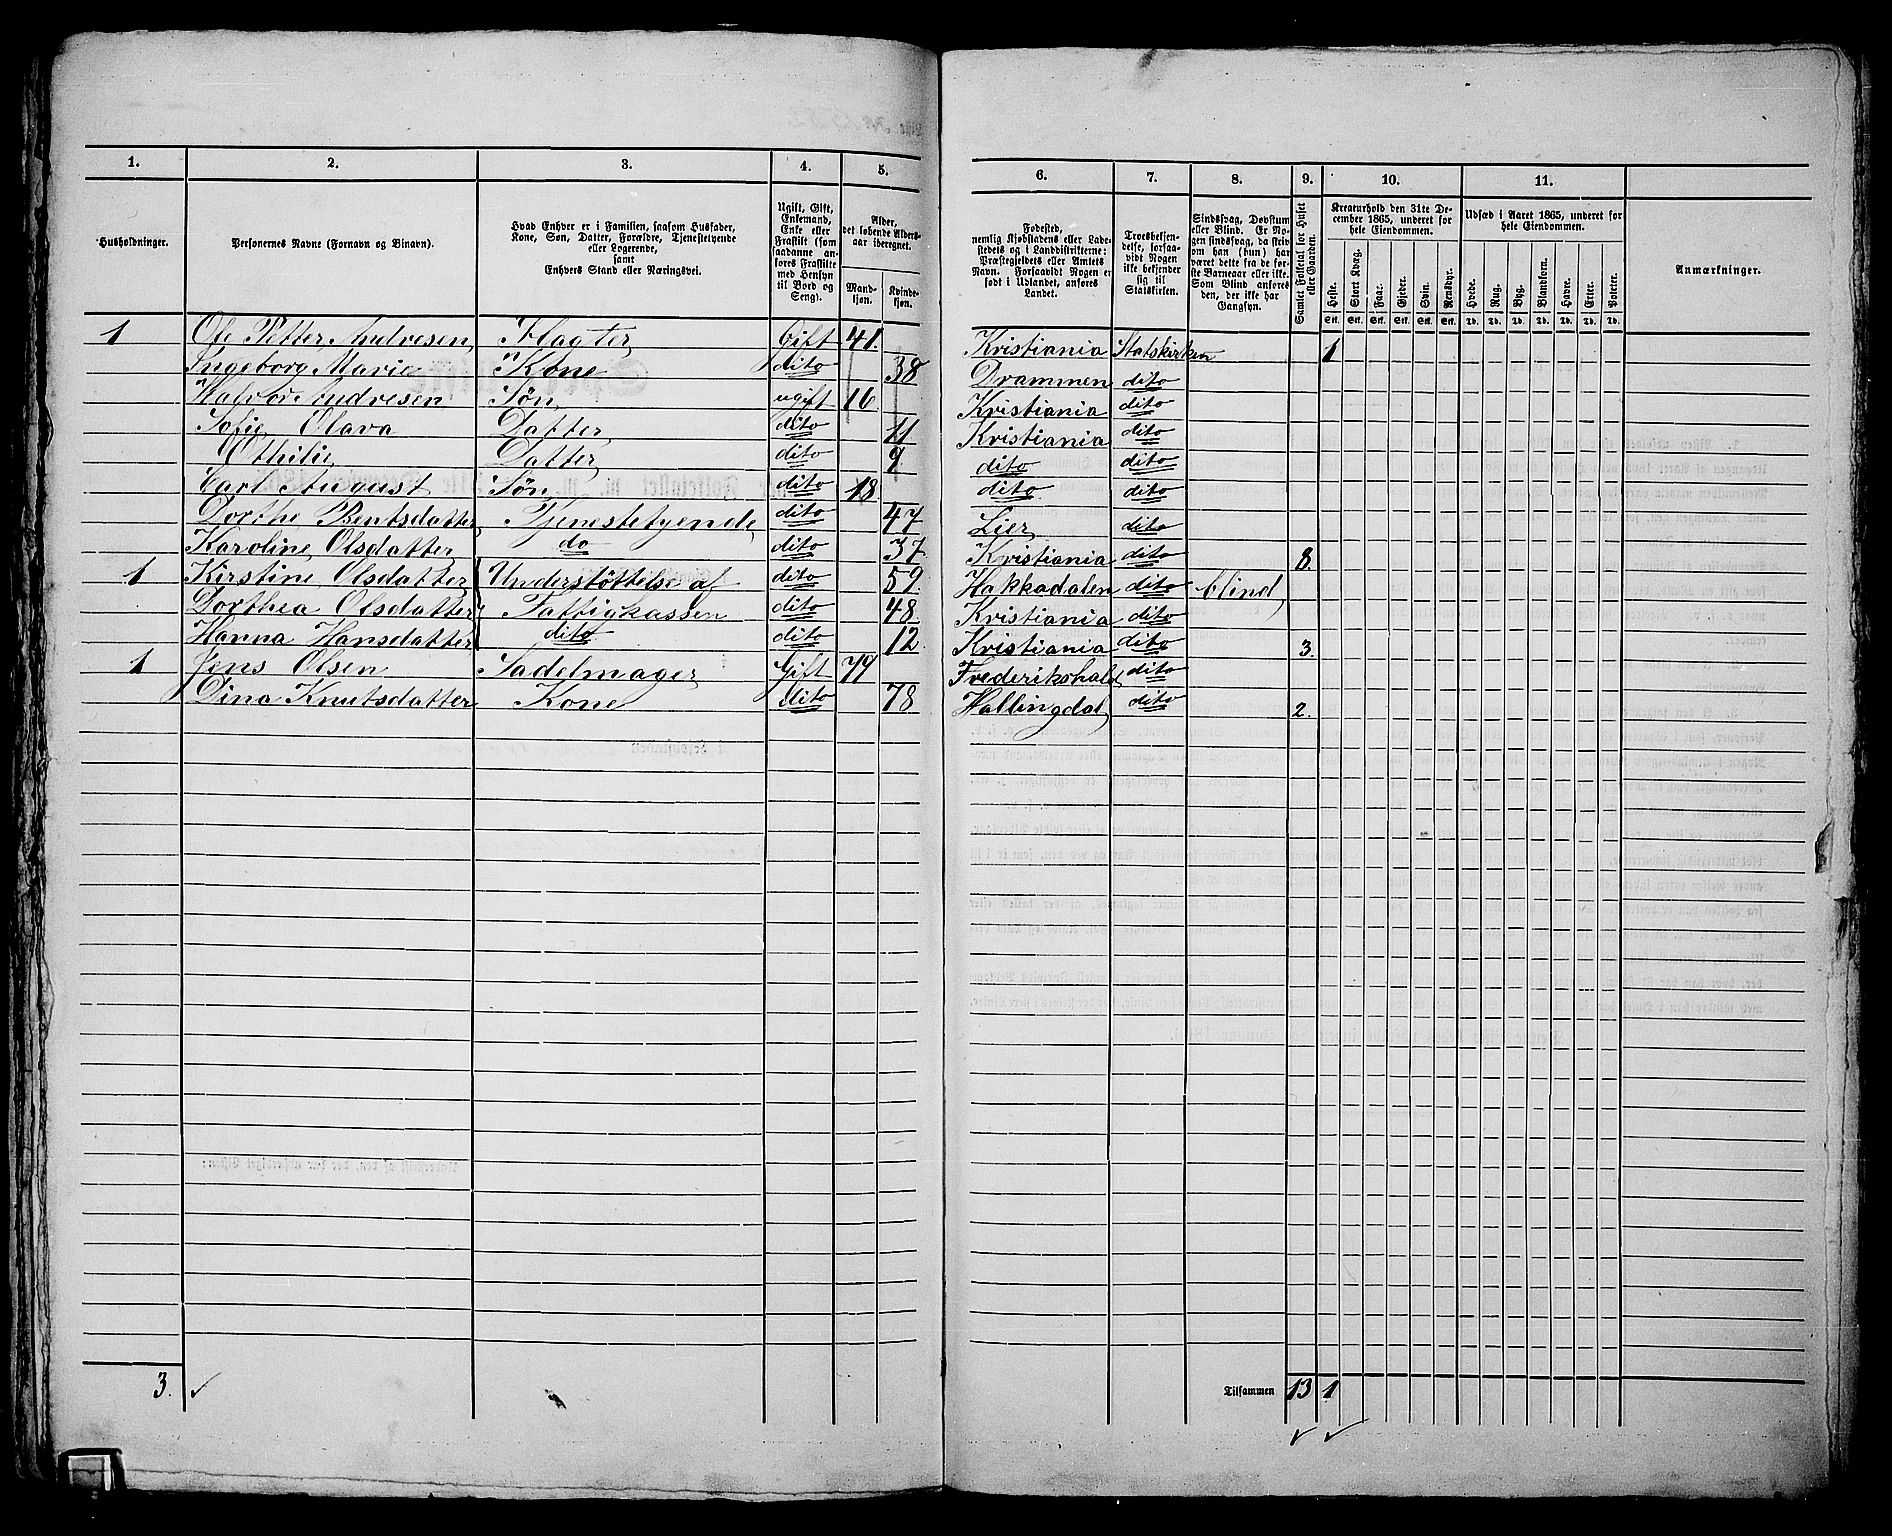 1. 2. 3. 4. 5. 6. 7. 8. 9. 10. 11.
Husholdninger.
Personernes Navne (Fornavn og Binavn).
Hvad Enhver er i Familien, saasom Husfader,
Kone, Søn, Datter, Forældre, Tjenestetyende
eller Logerende,
samt
Enhvers Stand eller Næringsvei.
Ugift, Gift,
Enkemand,
Enke eller
Fraskilt (som
saadanne an-
føres Fraskilte
med Hensyn
til Bord og
Seng).
Alder,
det løbende Alders-
aar iberegnet.
Mand-
kjøn.
Kvinde-
kjøn.
Fødested,
nemlig Kjøbstadens eller Lade-
stedets og i Landdistrikterne:
Præstegjeldets eller Amtets
Navn. Forsaavidt Nogen er
født i Udlandet, anføres
Landet.
Troesbekjen-
delse, forsaa-
vidt Nogen
ikke bekjender
sig til
Statskirken.
Sindssvag, Døvstum
eller Blind. Er No-
gen sindssvag, da skriv
om han (hun) har
været dette fra de før-
ste Barneaar eller ikke.
Som Blind anføres
den, der ikke har
Gangsyn.
Samlet Folketal for Huset
eller Gaarden.
Kreaturhold den 31te De-
cember 1865, underet for
hele Eiendommen.
Heste. Stort Kvæg. Faar. Gjeder. Svin. Rensdyr.
Stk. Stk. Stk. Stk. Stk. Stk.
Udsæd i Aaret 1865, underet for
hele Eiendommen.
Hvede. Rug. Byg. Blandkorn. Havre. Erter. Poteter.
Td. Td. Td. Td. Td. Td. Td.
Anmærkninger.
1 Ole Petter Andresen Slagter Gift 41. Kristiania Statskirken 1
Ingeborg Marie Kone dito 38 Drammen dito
Halvor Andresen Søn ugift 16 Kristiania dito
Sofie Olava Datter dito 11 Kristiania dito
Othilie Datter dito 9 dito dito
Carl August Søn dito 18 dito dito
Dorthe Bentsdatter Tjenestetyende dito 47 Lier dito
Karoline Olsdatter do dito 37 Kristiania dito 8.
1 Kirstine Olsdatter Understøttelse af dito 59 Hakkadalen dito blind
Dorthea Olsdatter Fattigkassen dito 48 Kristiania dito
Hanna Hansdatter dito dito 12 Kristiania dito 3.
1 Jens Olsen Sadelmager Gift 79 Frederikshald dito
Dina Knutsdatter Kone dito 78 Hallingdal dito 2.
3. Tilsammen 13 1